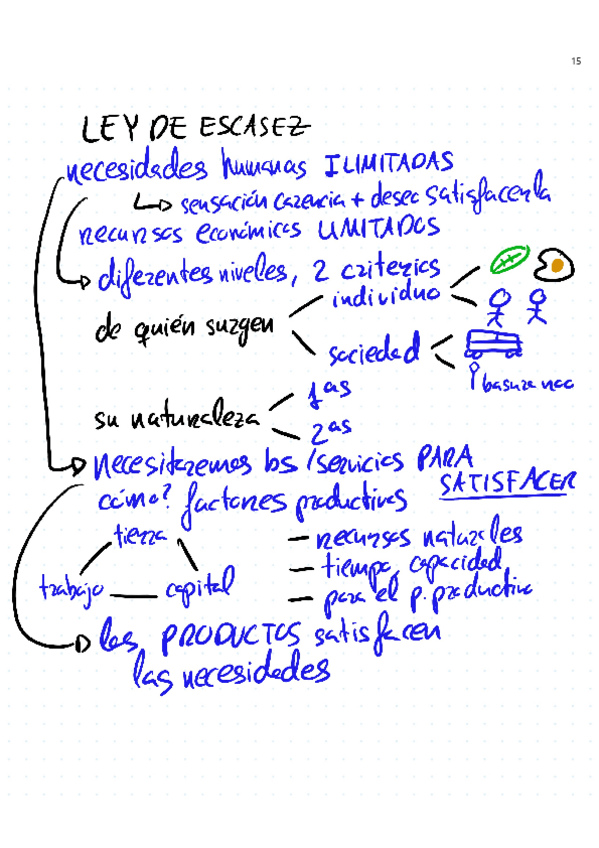 15
LEY DE ESCASEZ
necesidades humanas ILIMITADAS
sensación carencia + deseo satisfacerla
recursos económicos LIMITADOS
diferentes niveles, 2 criterios
individuo
de quién surgen
sociedad
basura noc
1as
su naturaleza
2as
necesitaremos bs/servicios PARA
SATISFACER
cómo? factores productivos
tierra
recursos naturales
tiempo, capacidad
trabajo — capital
para el p. productivo
los PRODUCTOS satisfacen
las necesidades